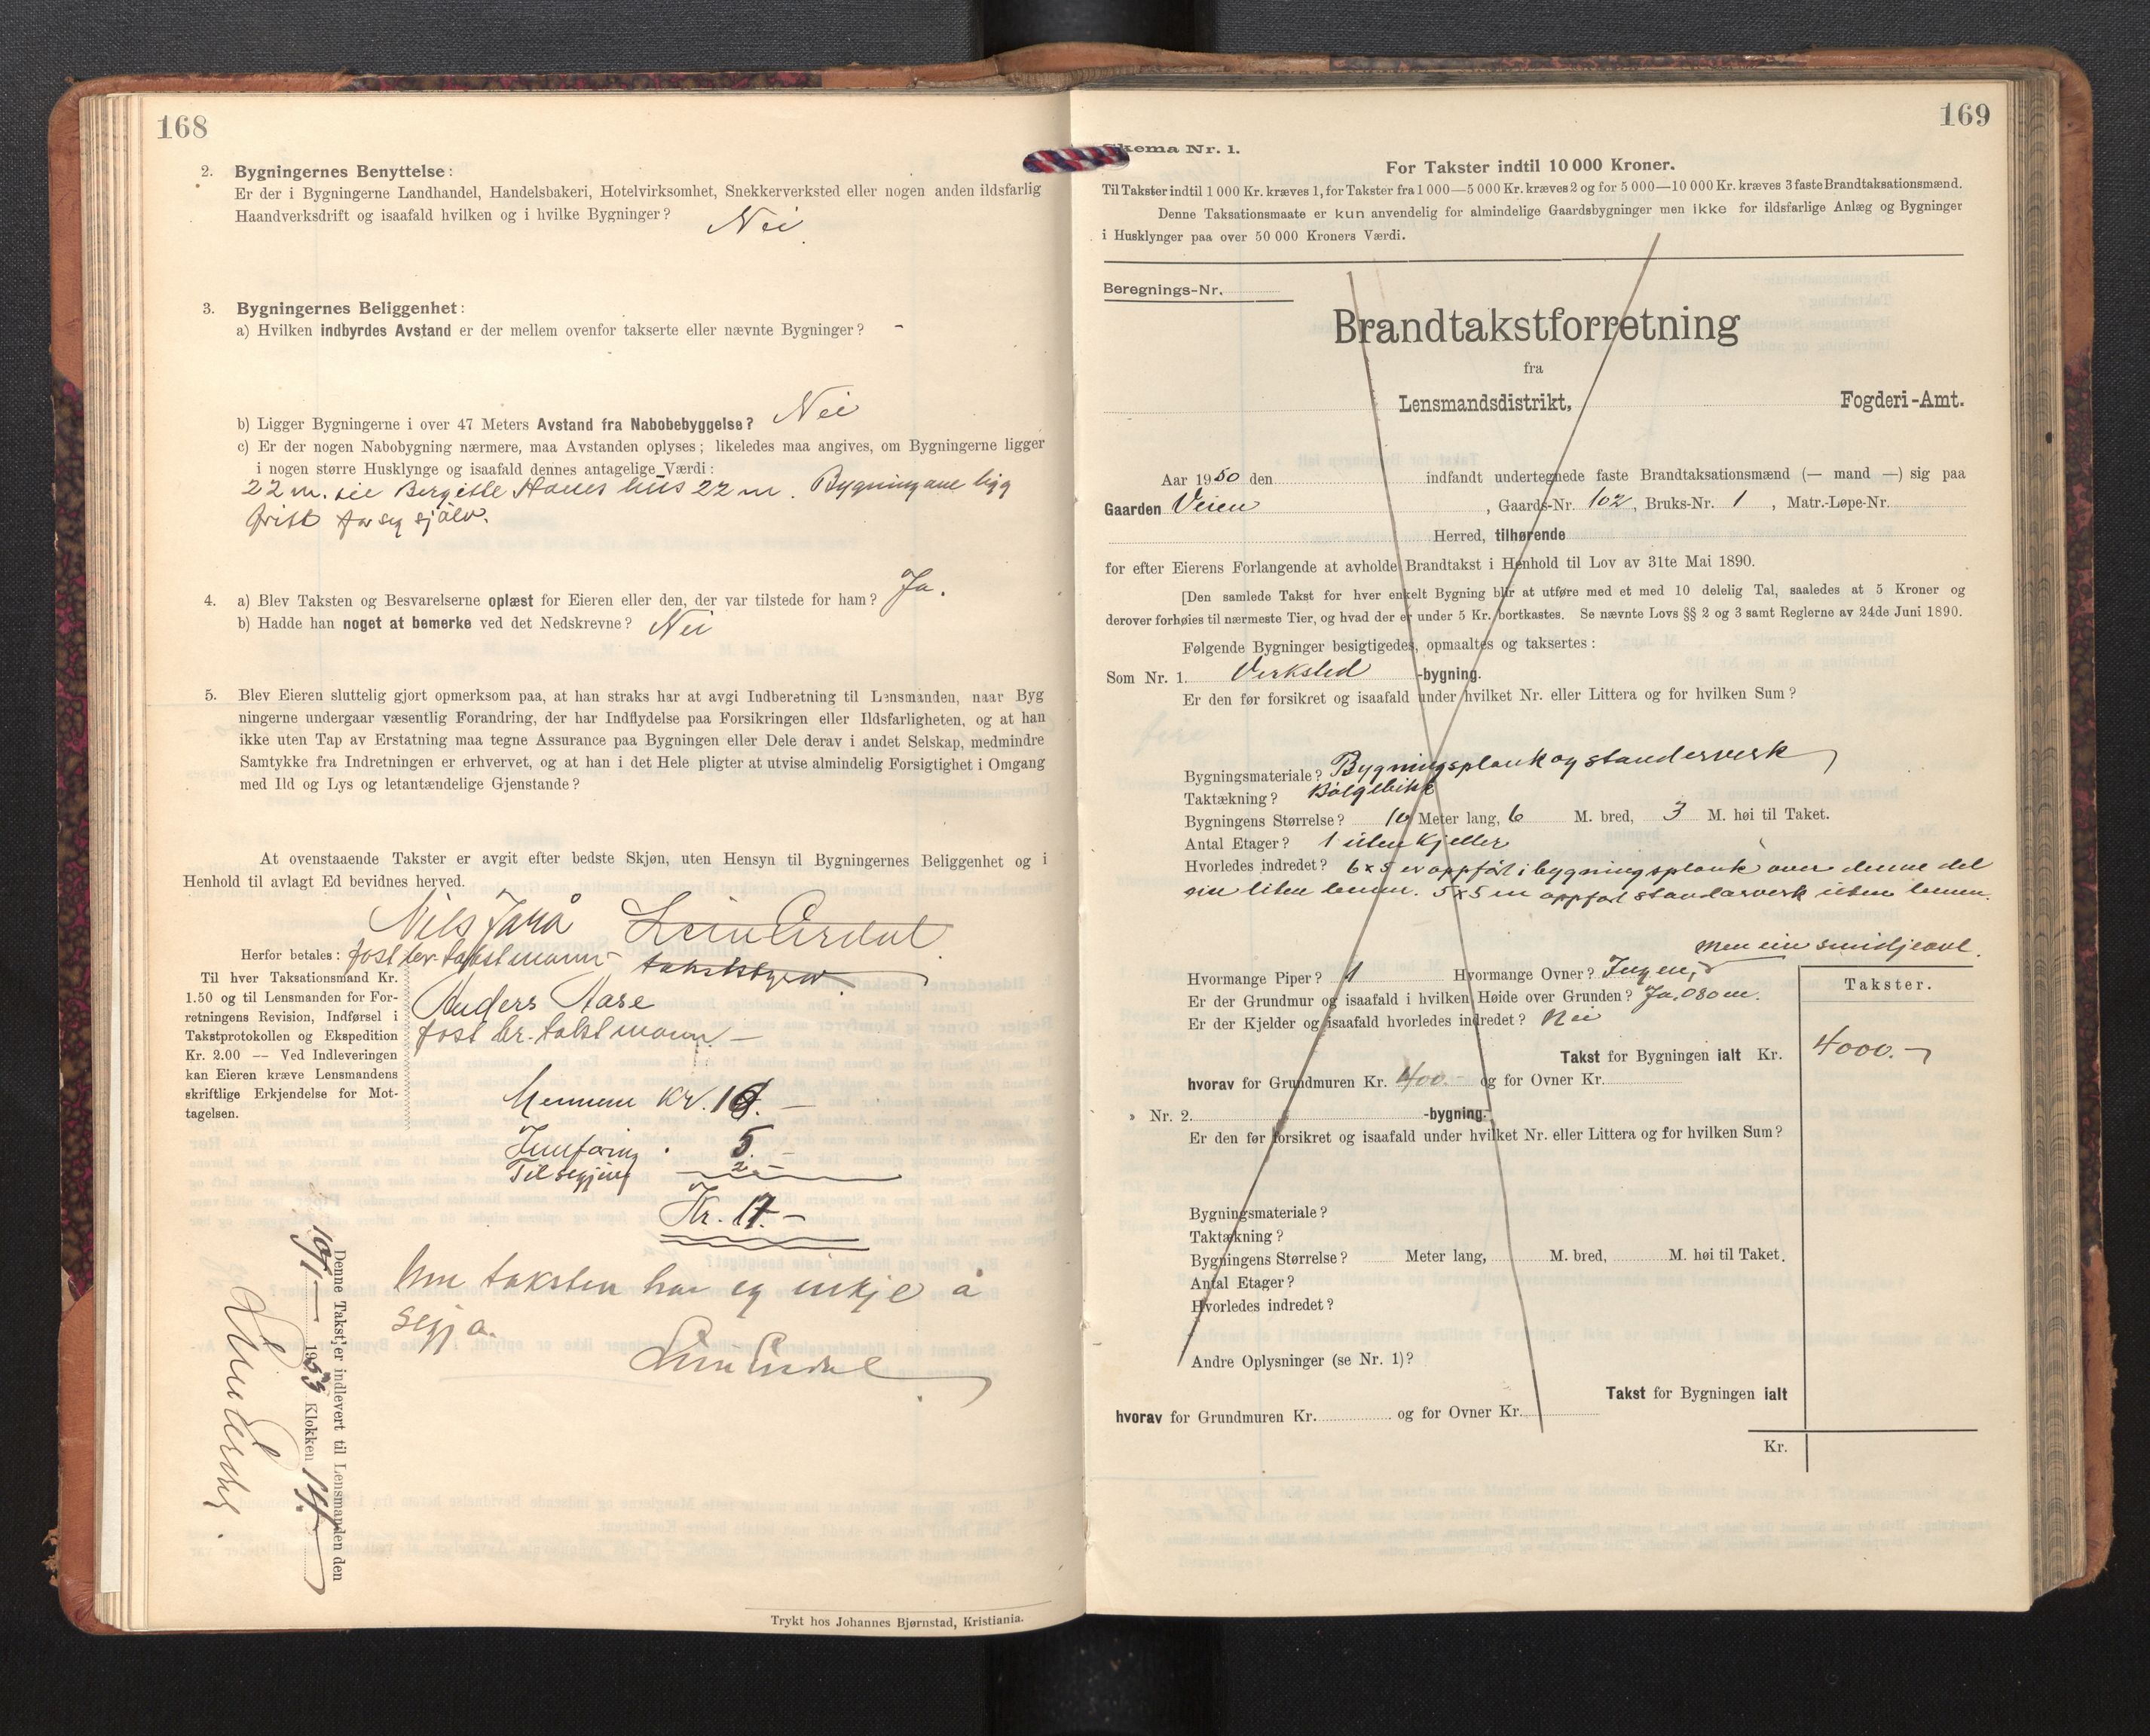 168
2. Bygningernes Benyttelse:
Er der i Bygningerne Landhandel, Handelsbakeri, Hotelvirksomhet, Snekkerverksted eller nogen anden ildsfarlig
Haandverksdrift og isaafald hvilken og i hvilke Bygninger? Nei.
3. Bygningernes Beliggenhet:
a) Hvilken indbyrdes Avstand er der mellem ovenfor takserte eller nævnte Bygninger? -
b) Ligger Bygningerne i over 47 Meters Avstand fra Nabobebyggelse? Nei
c) Er der nogen Nabobygning nærmere, maa Avstanden oplyses; likeledes maa angives, om Bygningerne ligger
i nogen større Husklynge og isaafald dennes antagelige Værdi:
22 m. hus 22 m. Bygningane ligg
fritt for seg sjølv.
4. a) Blev Taksten og Besvarelserne oplæst for Eieren eller den, der var tilstede for ham? Ja.
b) Hadde han noget at bemerke ved det Nedskrevne? Nei
5. Blev Eieren sluttelig gjort opmerksom paa, at han straks har at avgi Indberetning til Lensmanden, naar Byg
ningerne undergaar væsentlig Forandring, der har Indflydelse paa Forsikringen eller Ildsfarligheten, og at han
ikke uten Tap av Erstatning maa tegne Assurance paa Bygningen eller Dele derav i andet Selskap, medmindre
Samtykke fra Indretningen er erhvervet, og at han i det Hele pligter at utvise almindelig Forsigtighet i Omgang
med Ild og Lys og letantændelige Gjenstande?
At ovenstaaende Takster er avgit efter bedste Skjøn, uten Hensyn til Bygningernes Beliggenhet og i
Henhold til avlagt Ed bevidnes herved.
Nils
Herfor betales: fast br.takstmann
Til hver Taksationsmand Kr.
1.50 og til Lensmanden for For-
retningens Revision, Indførsel i
Takstprotokollen og Ekspedition
Kr. 2.00 — Ved Indleveringen
kan Eieren kræve Lensmandens
skriftlige Erkjendelse for Mot-
tagelsen.
Anders Aase
fast br.takstmann -
Mennene Kr. 10. -
Innføring 5. -
Tilsegjing 2. -
Kr. 17. -
Um taksten har eg inkje å
segja.
Denne Takst er indlevert til Lensmanden den
10/1 1953 Klokken 14
Trykt hos Johannes Bjørnstad, Kristiania.
169
Skema Nr. 1.
For Takster indtil 10 000 Kroner.
Til Takster indtil 1 000 Kr. kræves 1, for Takster fra 1 000—5 000 Kr. kræves 2 og for 5 000—10 000 Kr. kræves 3 faste Brandtaksationsmænd.
Denne Taksationsmaate er kun anvendelig for almindelige Gaardsbygninger men ikke for ildsfarlige Anlæg og Bygninger
i Husklynger paa over 50 000 Kroners Værdi.
Beregnings-Nr.
Brandtakstforretning
fra
Lensmandsdistrikt, Fogderi-Amt.
Aar 1950 den indfandt undertegnede faste Brandtaksationsmænd (— mand —) sig paa
Gaarden Veien, Gaards-Nr. 102, Bruks-Nr. 1, Matr.-Løpe-Nr.
Herred, tilhørende
for efter Eierens Forlangende at avholde Brandtakst i Henhold til Lov av 31te Mai 1890.
[Den samlede Takst for hver enkelt Bygning blir at utføre med et med 10 delelig Tal, saaledes at 5 Kroner og
derover forhøies til nærmeste Tier, og hvad der er under 5 Kr. bortkastes. Se nævnte Lovs §§ 2 og 3 samt Reglerne av 24de Juni 1890.
Følgende Bygninger besigtigedes, opmaaltes og taksertes:
Som Nr. 1. Verksted -bygning.
Er den før forsikret og isaafald under hvilket Nr. eller Littera og for hvilken Sum?
Bygningsmateriale? Bygningsplank og standerverk
Taktækning? Bølgeblikk
Bygningens Størrelse? 10 Meter lang, 6 M. bred, 3 M. høi til Taket.
Antal Etager? 1 uten kjeller
Hvorledes indredet? 6x5 er oppført i bygningsplank over denne del
ein liten lemm. 5x5 m oppført standarverk uten lemm.
men ein smidjeavl.
Hvormange Piper? 1 Hvormange Ovner? Ingen,
Er der Grundmur og isaafald i hvilken Høide over Grunden? Ja, 080 m.
Er der Kjelder og isaafald hvorledes indredet? Nei
Takster.
Takst for Bygningen ialt Kr. 4000.-
hvorav for Grundmuren Kr. 400.- og for Ovner Kr.
» Nr. 2. -bygning.
Er den før forsikret og isaafald under hvilket Nr. eller Littera og for hvilken Sum?
Bygningsmateriale?
Taktækning?
Bygningens Størrelse? Meter lang, M. bred, M. høi til Taket.
Antal Etager?
Hvorledes indredet?
Andre Oplysninger (se Nr. 1)?
Takst for Bygningen ialt
hvorav for Grundmuren Kr. og for Ovner Kr.
Kr.